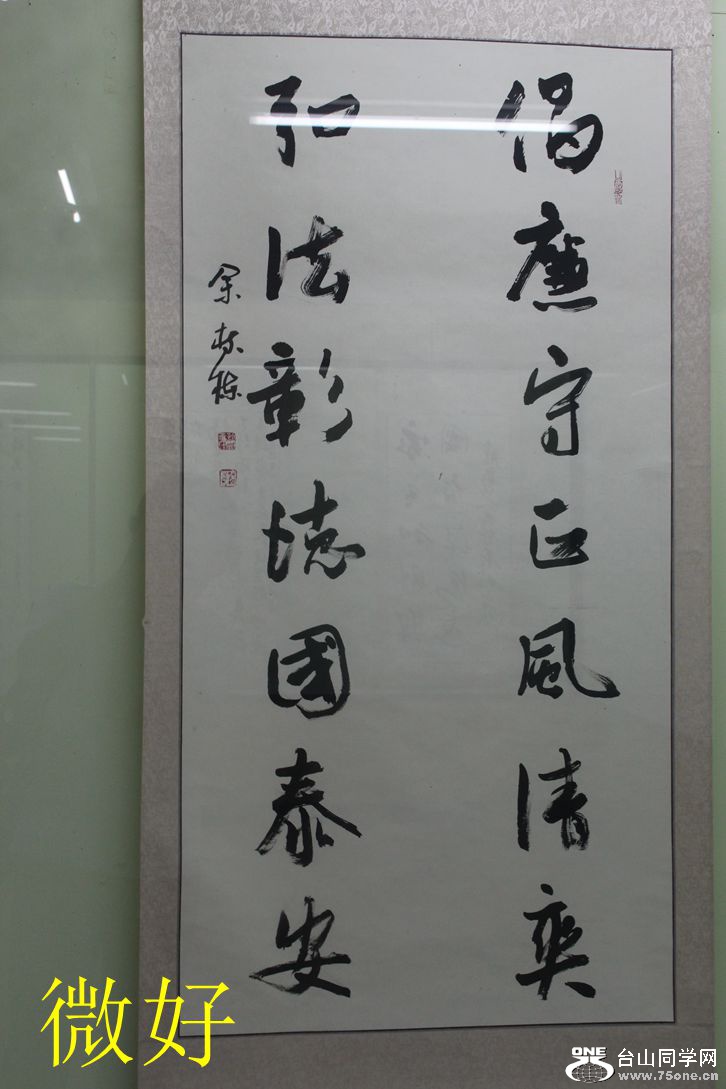 倡廉守正風清爽
弘法彰德國泰安
余
微好
ONE
台山同学网
www.75one.cn